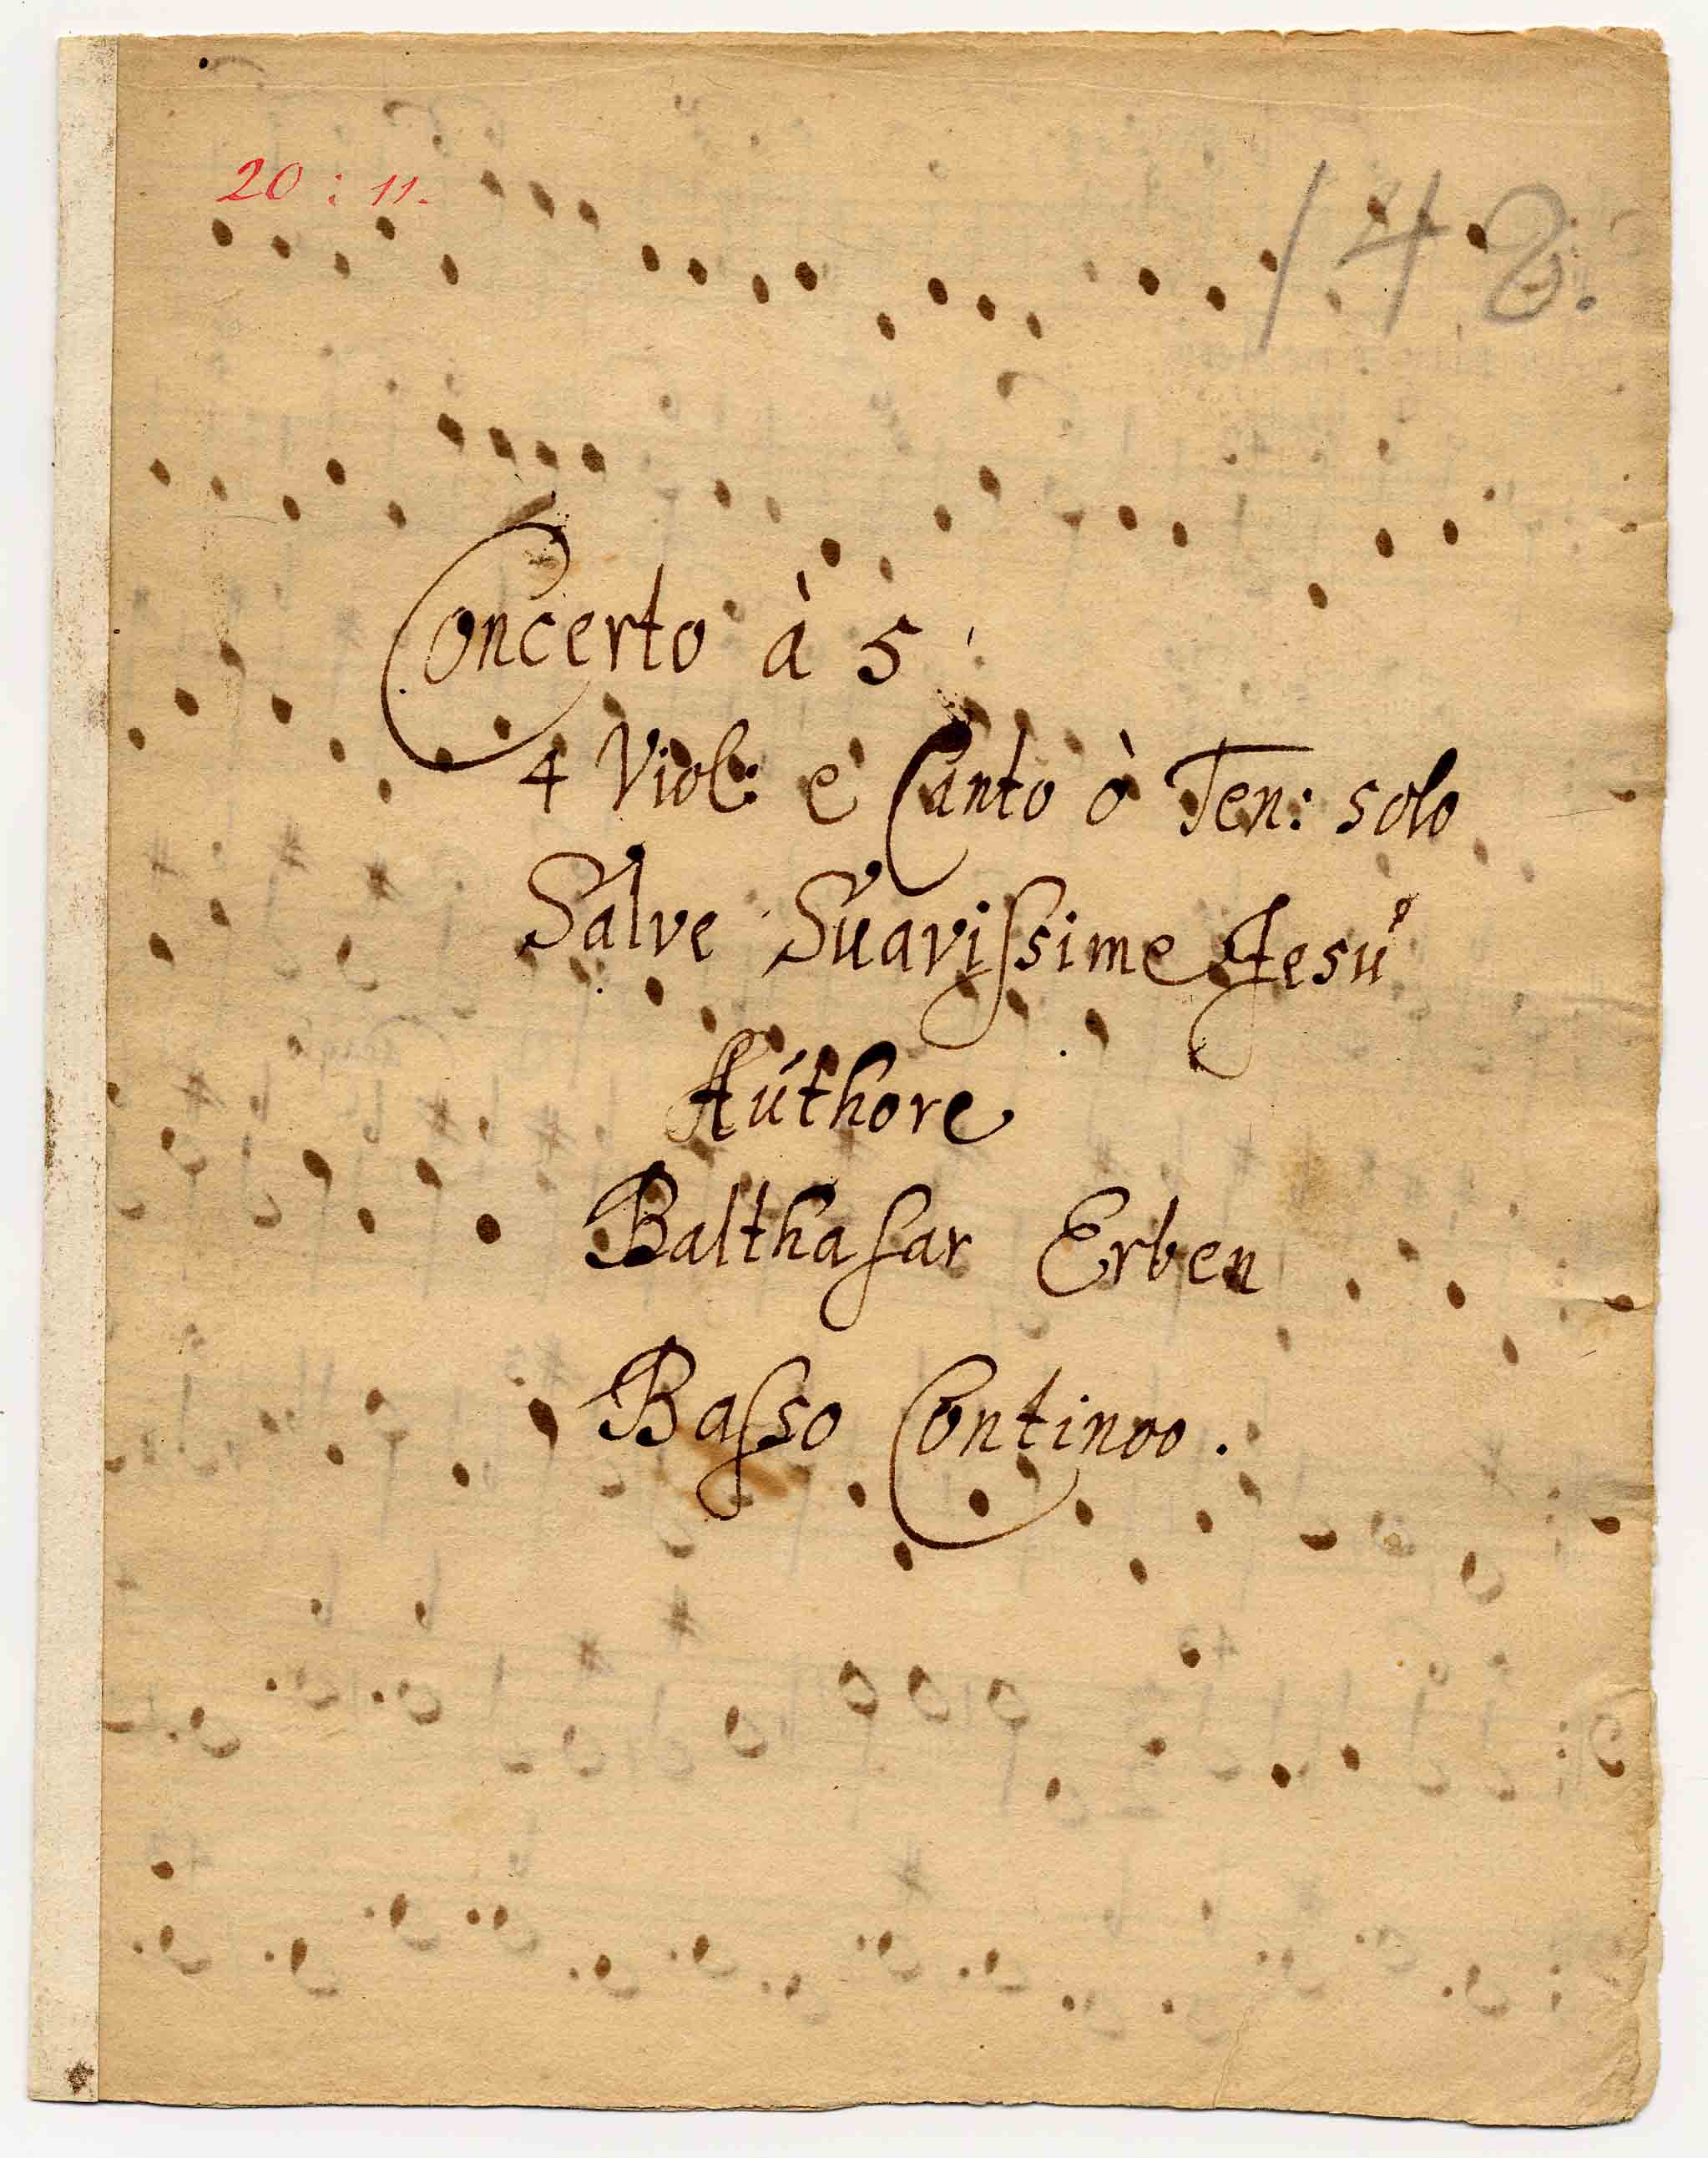 20 : 11.
148.
Concerto à 5
4 Viol: e Canto ò Ten: solo
Salve Suaviſsime Jesu
Authore
Balthaſar Erben
Baſso Continoo.